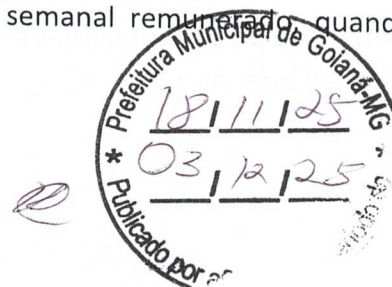 semanal remunerado, quand
Prefeitura Municipal de Goianá-MG
18/11/25
03/12/25
* Publicado por